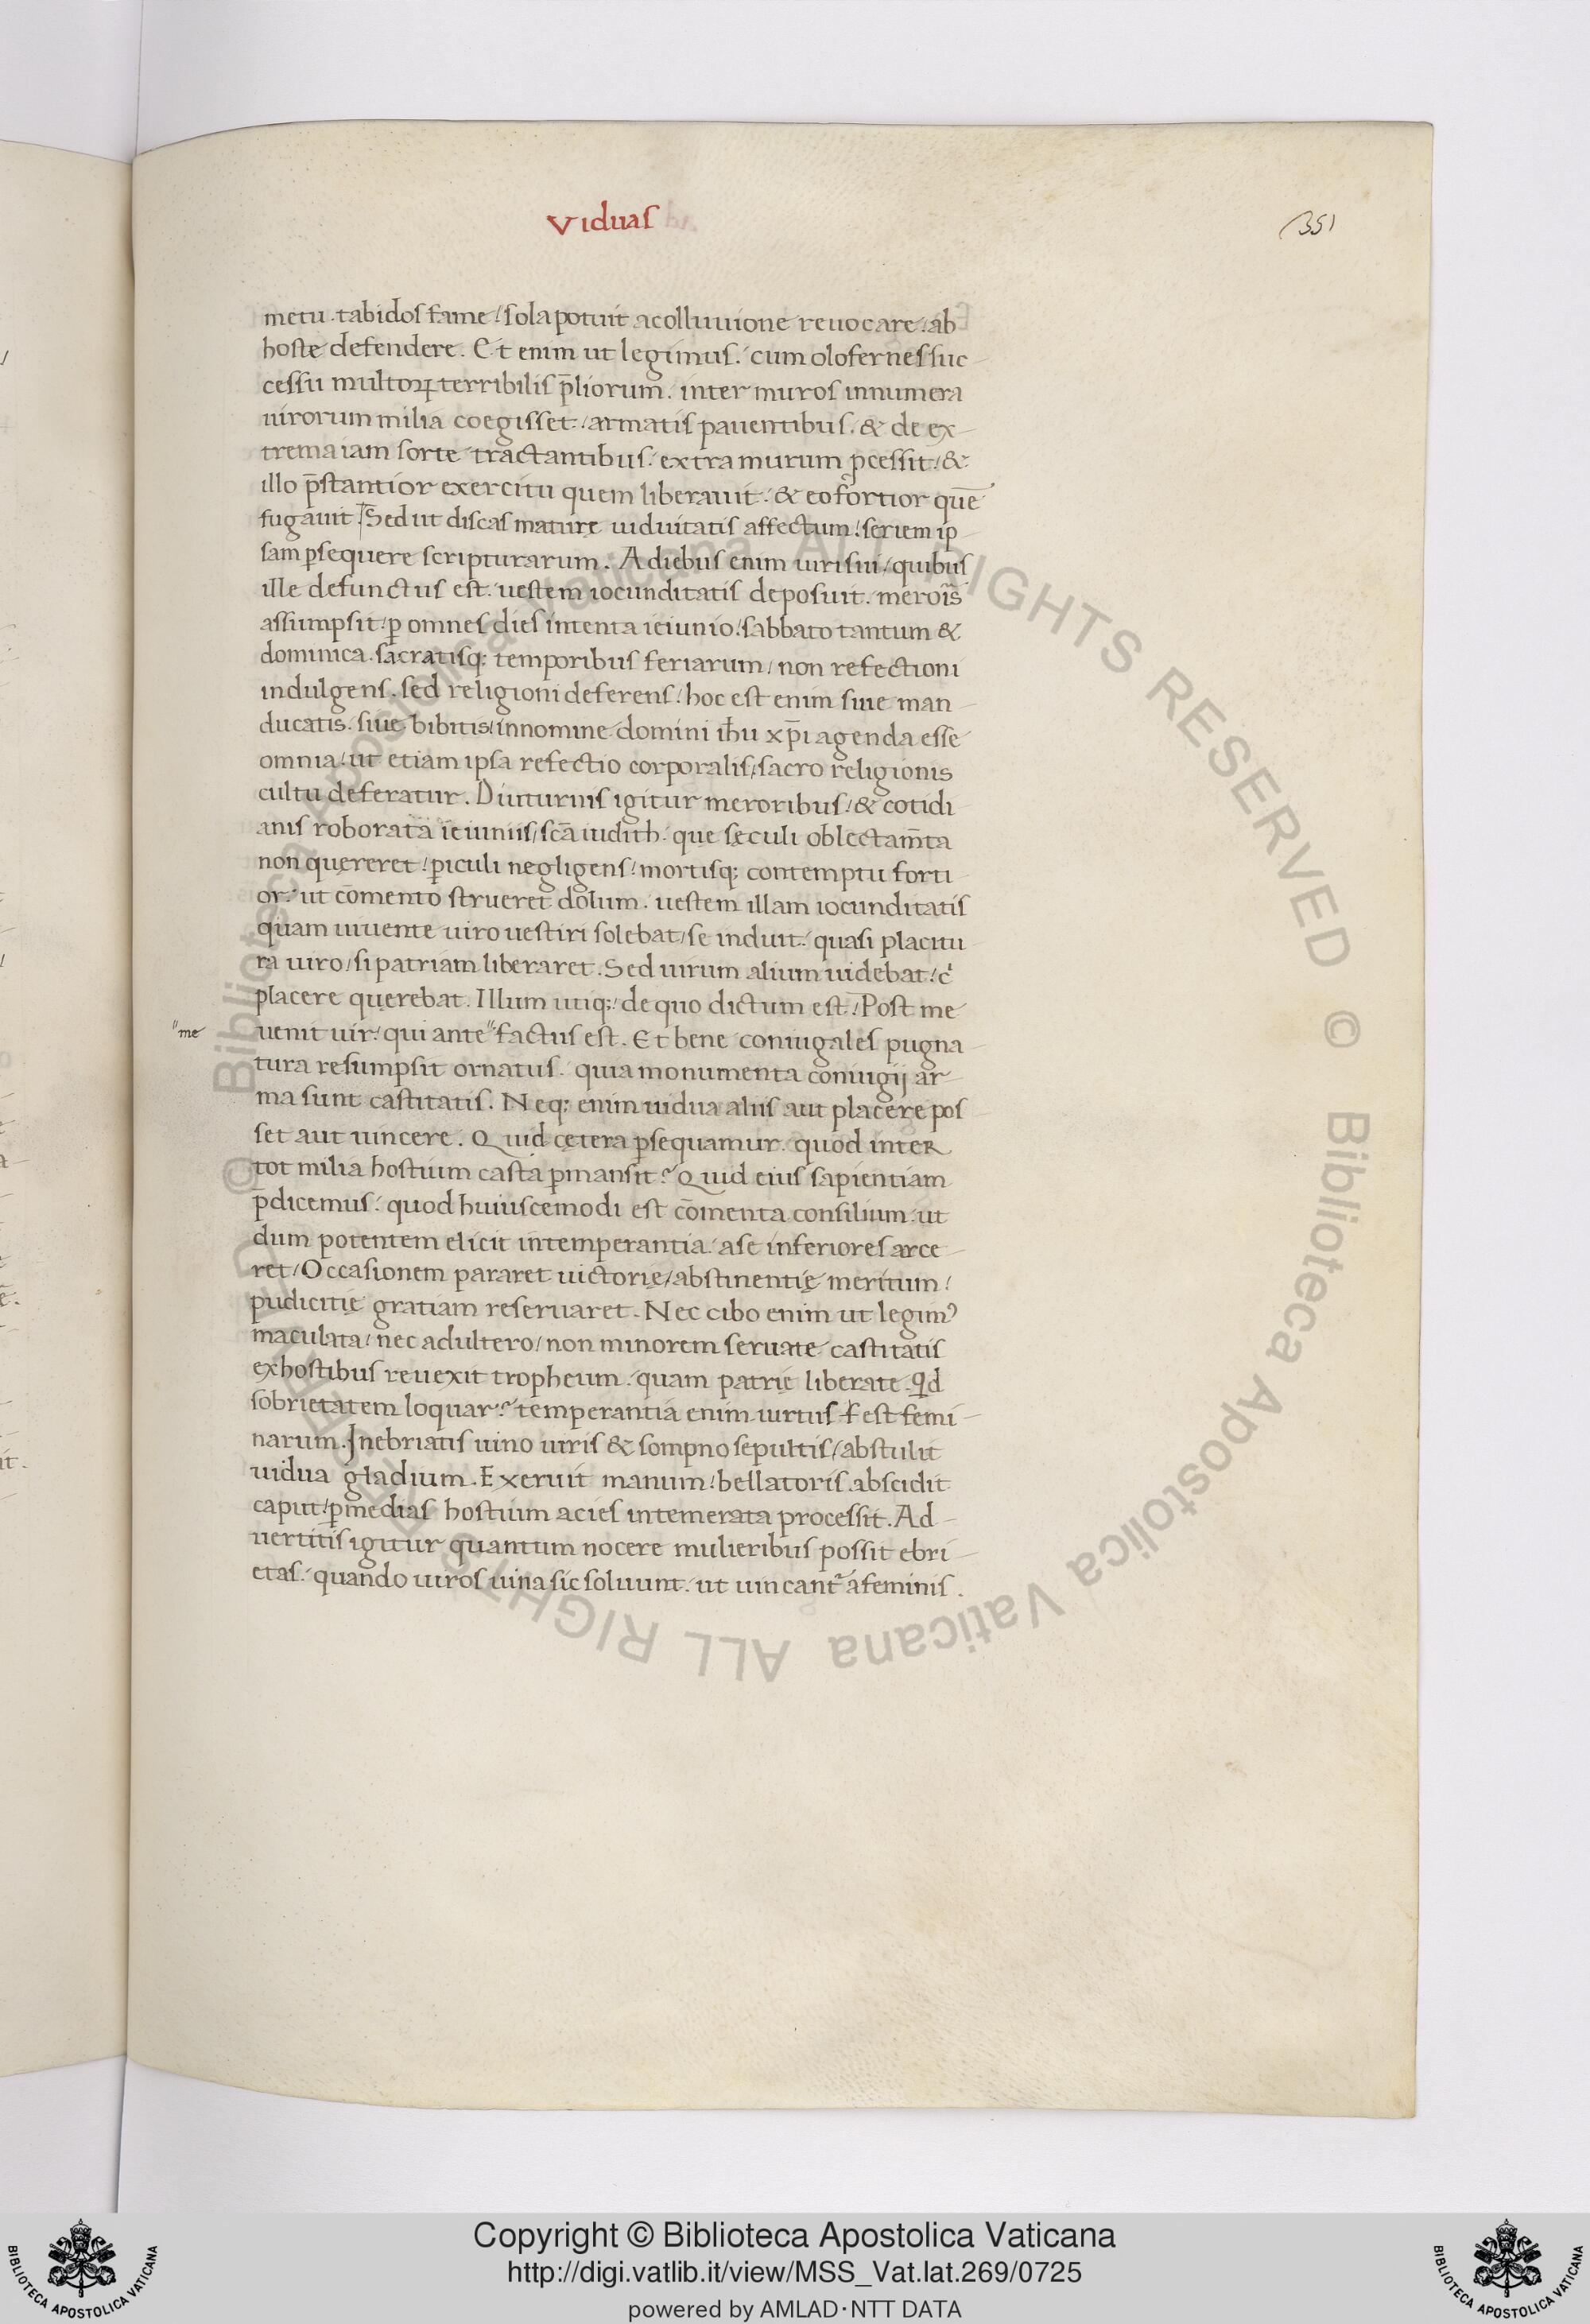 Viduas
351
metu. tabidos fame / sola potuit a colluuione reuocare / ab
hoste defendere. Et enim ut legimus. cum olofernes suc
cessu multoꝝ terribilis p̄liorum. inter muros innumera
uirorum milia coegisset / armatis pauentibus. & de ex
trema iam sorte tractantibus. extra murum ꝓcessit / &
illo p̄stantior exercitu quem liberauit. & eo fortior quē
fugauit. Sed ut discas mature uiduitatis affectum / seriem ip
sam ꝑsequere scripturarum. A diebus enim uiri sui / quibus
ille defunctus est. uestem iocunditatis deposuit. meroīs
assumpsit / ꝑ omnes dies intenta ieiunio / sabbato tantum &
dominica. sacratisq; temporibus feriarum / non refectioni
indulgens. sed religioni deferens / hoc est enim siue man
ducatis. siue bibitis / in nomine domini ih̄u xp̄i agenda esse
omnia / ut etiam ipsa refectio corporalis / sacro religionis
cultu deferatur. Diuturnis igitur meroribus / & cotidi
anis roborata ieiuniis / scā iudith. que sęculi oblectam̄ta
non quęreret / ꝑiculi negligens / mortisq; contemptu forti
or. ut cōmento strueret dolum. uestem illam iocunditatis
quam uiuente uiro uestiri solebat / se induit. quasi placitu
ra uiro / si patriam liberaret. Sed uirum alium uidebat / cͥ
placere querebat. Illum utiq; / de quo dictum est / Post me
"me
uenit uir / qui ante " factus est. Et bene coniugales pugna
tura resumpsit ornatus. quia monumenta coniugij ar
ma sunt castitatis. Neq; enim uidua aliis aut placere pos
set aut uincere. Quid cętera ꝑsequamur. quod inter
tot milia hostium casta ꝑmansit? Quid eius sapientiam
p̄dicemus. quod huiuscemodi est cōmenta consilium. ut
dum potentem elicit intemperantia. a se inferiores arce
ret / Occasionem pararet uictorię / abstinentię meritum /
pudicitię gratiam reseruaret. Nec cibo enim ut legimꝰ
maculata / nec adultero / non minorem seruate castitatis
ex hostibus reuexit tropheum. quam patrię liberate. Qͥd
sobrietatem loquar? temperantia enim uirtus est femi
narum. Inebriatis uino uiris & sompno sepultis / abstulit
uidua gladium. Exeruit manum / bellatoris abscidit
caput / ꝑ medias hostium acies intemerata processit. Ad
uertitis igitur quantum nocere mulieribus possit ebri
etas. quando uiros uina sic soluunt. ut uincant᷑ a feminis.
© Biblioteca Apostolica Vaticana ALL RIGHTS RESERVED © Biblioteca Apostolica Vaticana ALL RIGHTS RESERVED
Copyright © Biblioteca Apostolica Vaticana
http://digi.vatlib.it/view/MSS_Vat.lat.269/0725
powered by AMLAD·NTT DATA
BIBLIOTECA APOSTOLICA VATICANA
BIBLIOTECA APOSTOLICA VATICANA